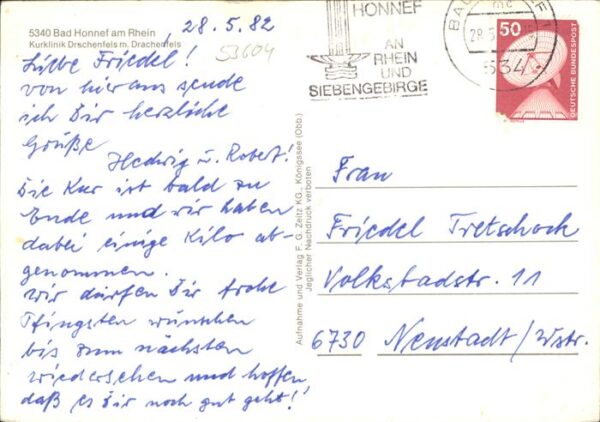 28.5.82
5340 Bad Honnef am Rhein
Kurklinik Drachenfels m. Drachenfels
53604
Liebe Friedel!
von hier aus sende
ich Dir herzliche
Grüße
Hedwig u. Robert!
Die Kur ist bald zu
Ende und wir haben
dabei einige Kilo ab-
genommen.
Wir dürfen Dir frohe
Pfingsten wünschen
bis zum nächsten
wiedersehen und hoffen,
daß es Dir noch gut geht!
Aufnahme und Verlag F. G. Zeitz KG., Königssee (Obb.)
Jeglicher Nachdruck verboten
HONNEF
AN
RHEIN
UND
SIEBENGEBIRGE
BAD
28.5
mc
534
50
DEUTSCHE BUNDESPOST
Frau
Friedel Tretschock
Volksbadstr. 11
6730 Neustadt/Wstr.